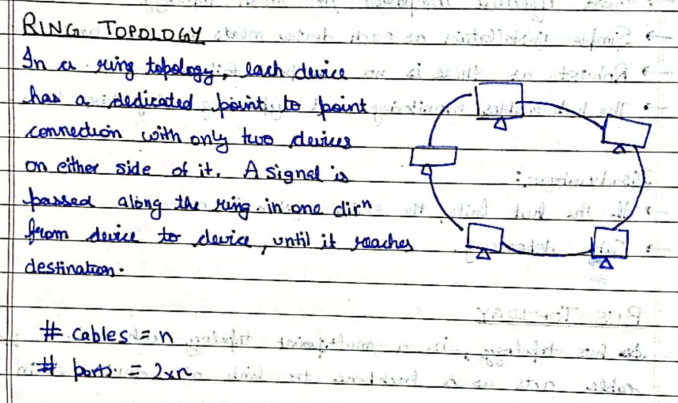 RING TOPOLOGY
In a ring topology, each device
has a dedicated point to point
connection with only two devices
on either side of it. A signal is
passed along the ring in one dirⁿ
from device to device, until it reaches
destination.
# cables = n
# ports = 2xn